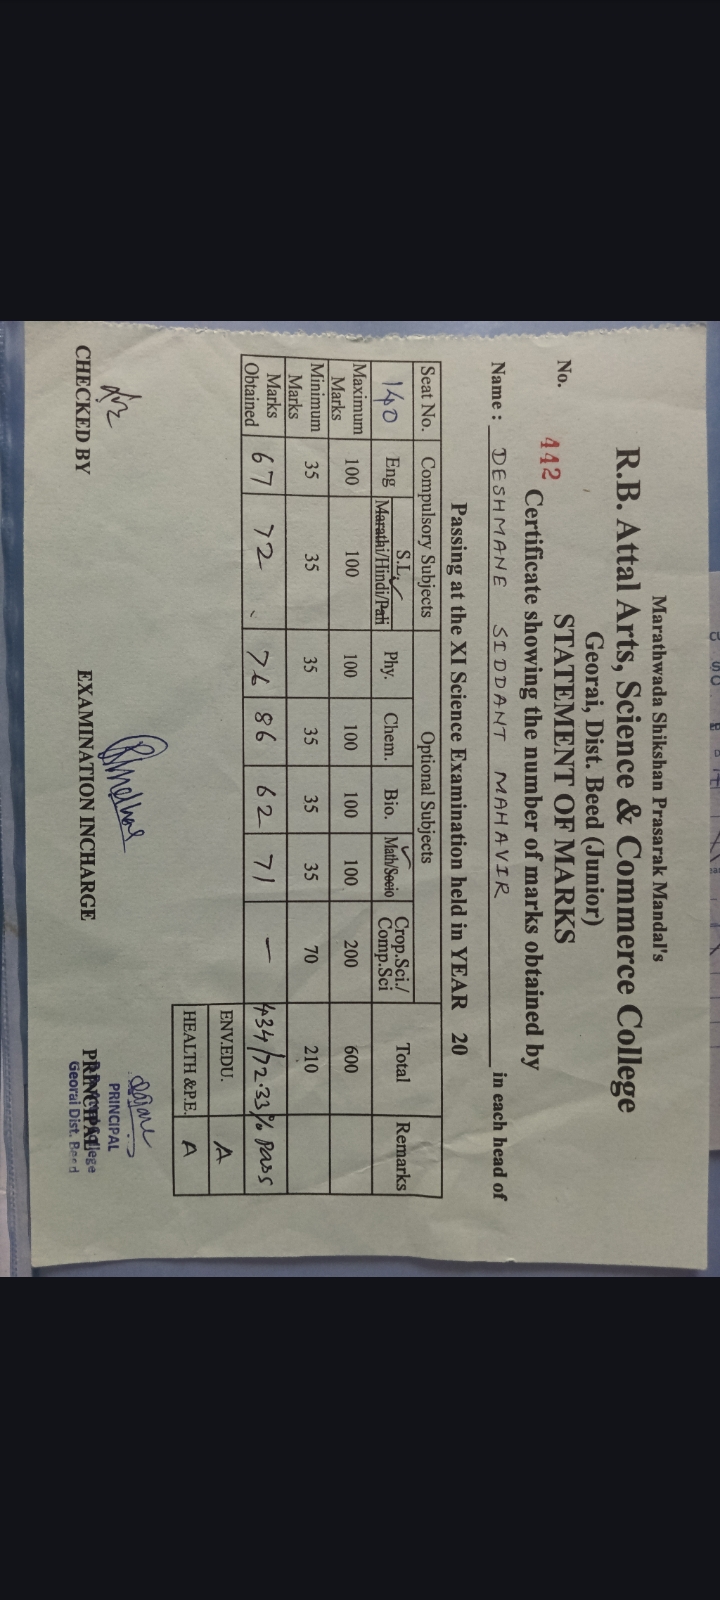 Marathwada Shikshan Prasarak Mandal's
R.B. Attal Arts, Science & Commerce College
Georai, Dist. Beed (Junior)
STATEMENT OF MARKS
No. 442 Certificate showing the number of marks obtained by
Name : DESHMANE SIDDANT MAHAVIR in each head of
Passing at the XI Science Examination held in YEAR 20
Seat No. Compulsory Subjects Optional Subjects Total Remarks
140 Eng S.L. Marathi/Hindi/Pali Phy. Chem. Bio. Math/Socio Crop.Sci./Comp.Sci
Maximum Marks 100 100 100 100 100 100 200 600
Minimum Marks 35 35 35 35 35 35 70 210
Marks Obtained 67 72 76 86 62 71 – 434/72.33% Pass
ENV.EDU. A
HEALTH &P.E. A
CHECKED BY EXAMINATION INCHARGE PRINCIPAL
PRINCIPAL
Georai Dist. Beed